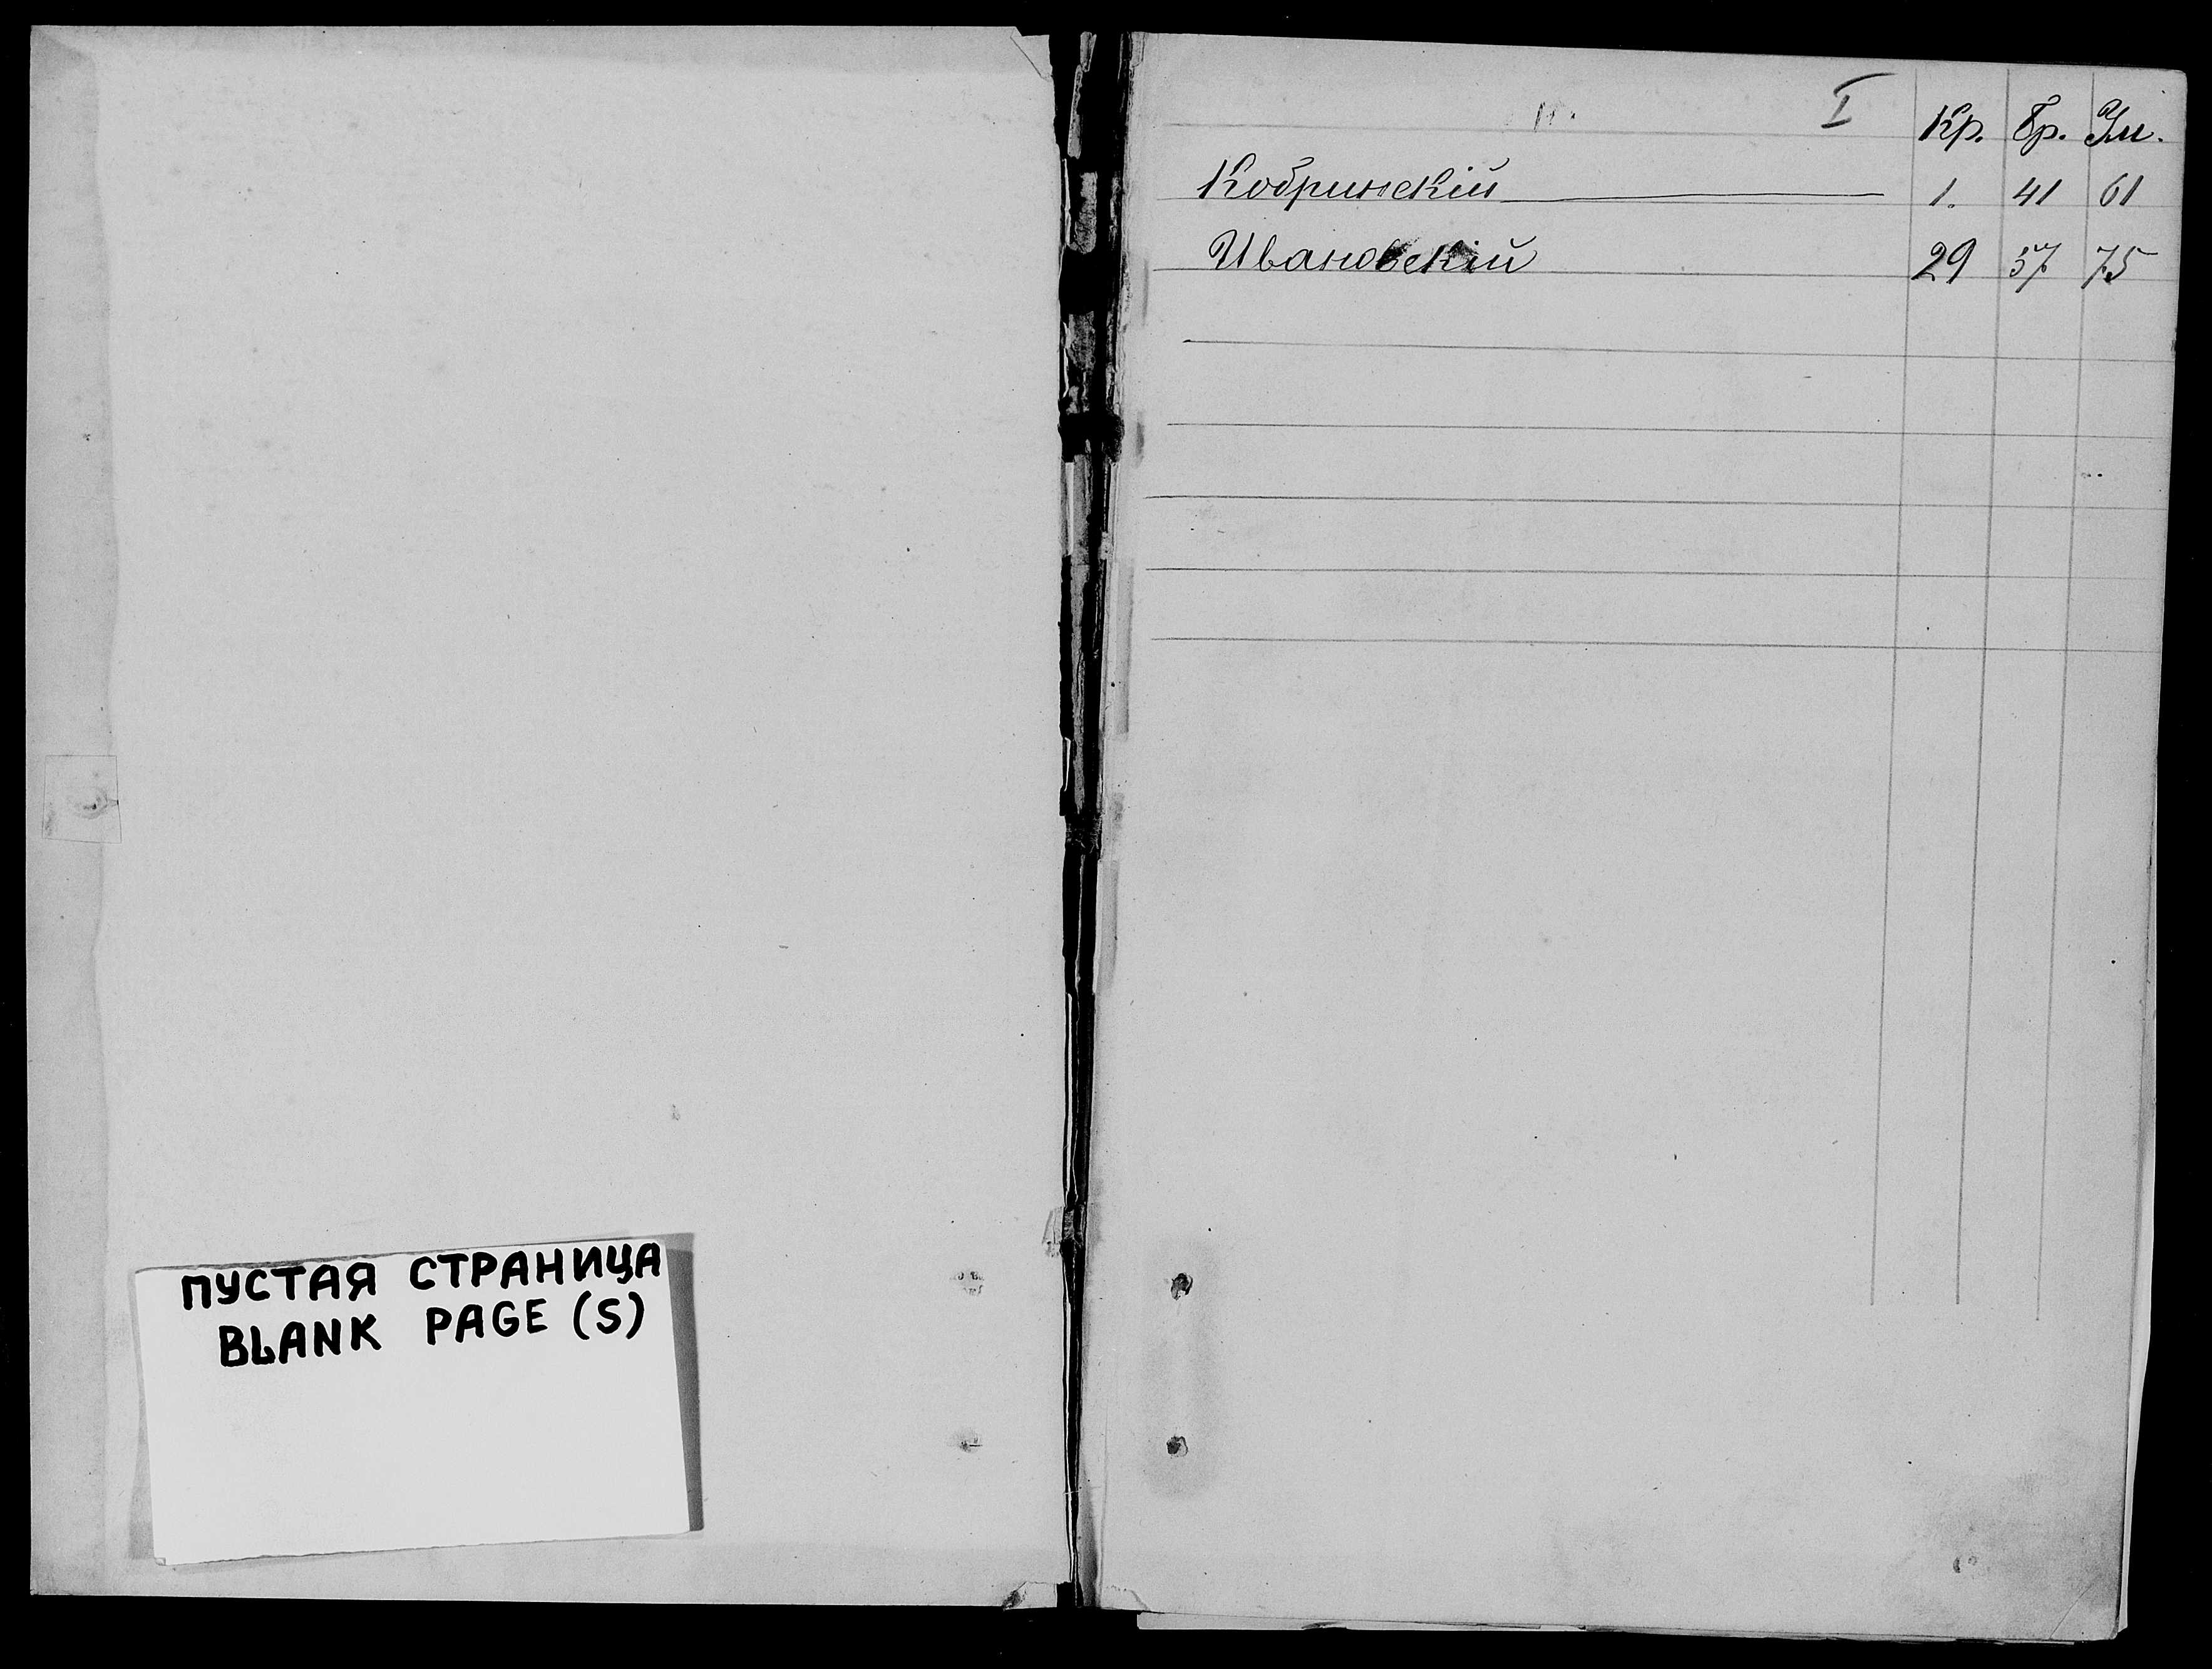 ПУСТАЯ СТРАНИЦА
BLANK PAGE (S)
I Кр. Бр. Ум.
Кобринскій 1. 41 61
Ивановскій 29 57 75